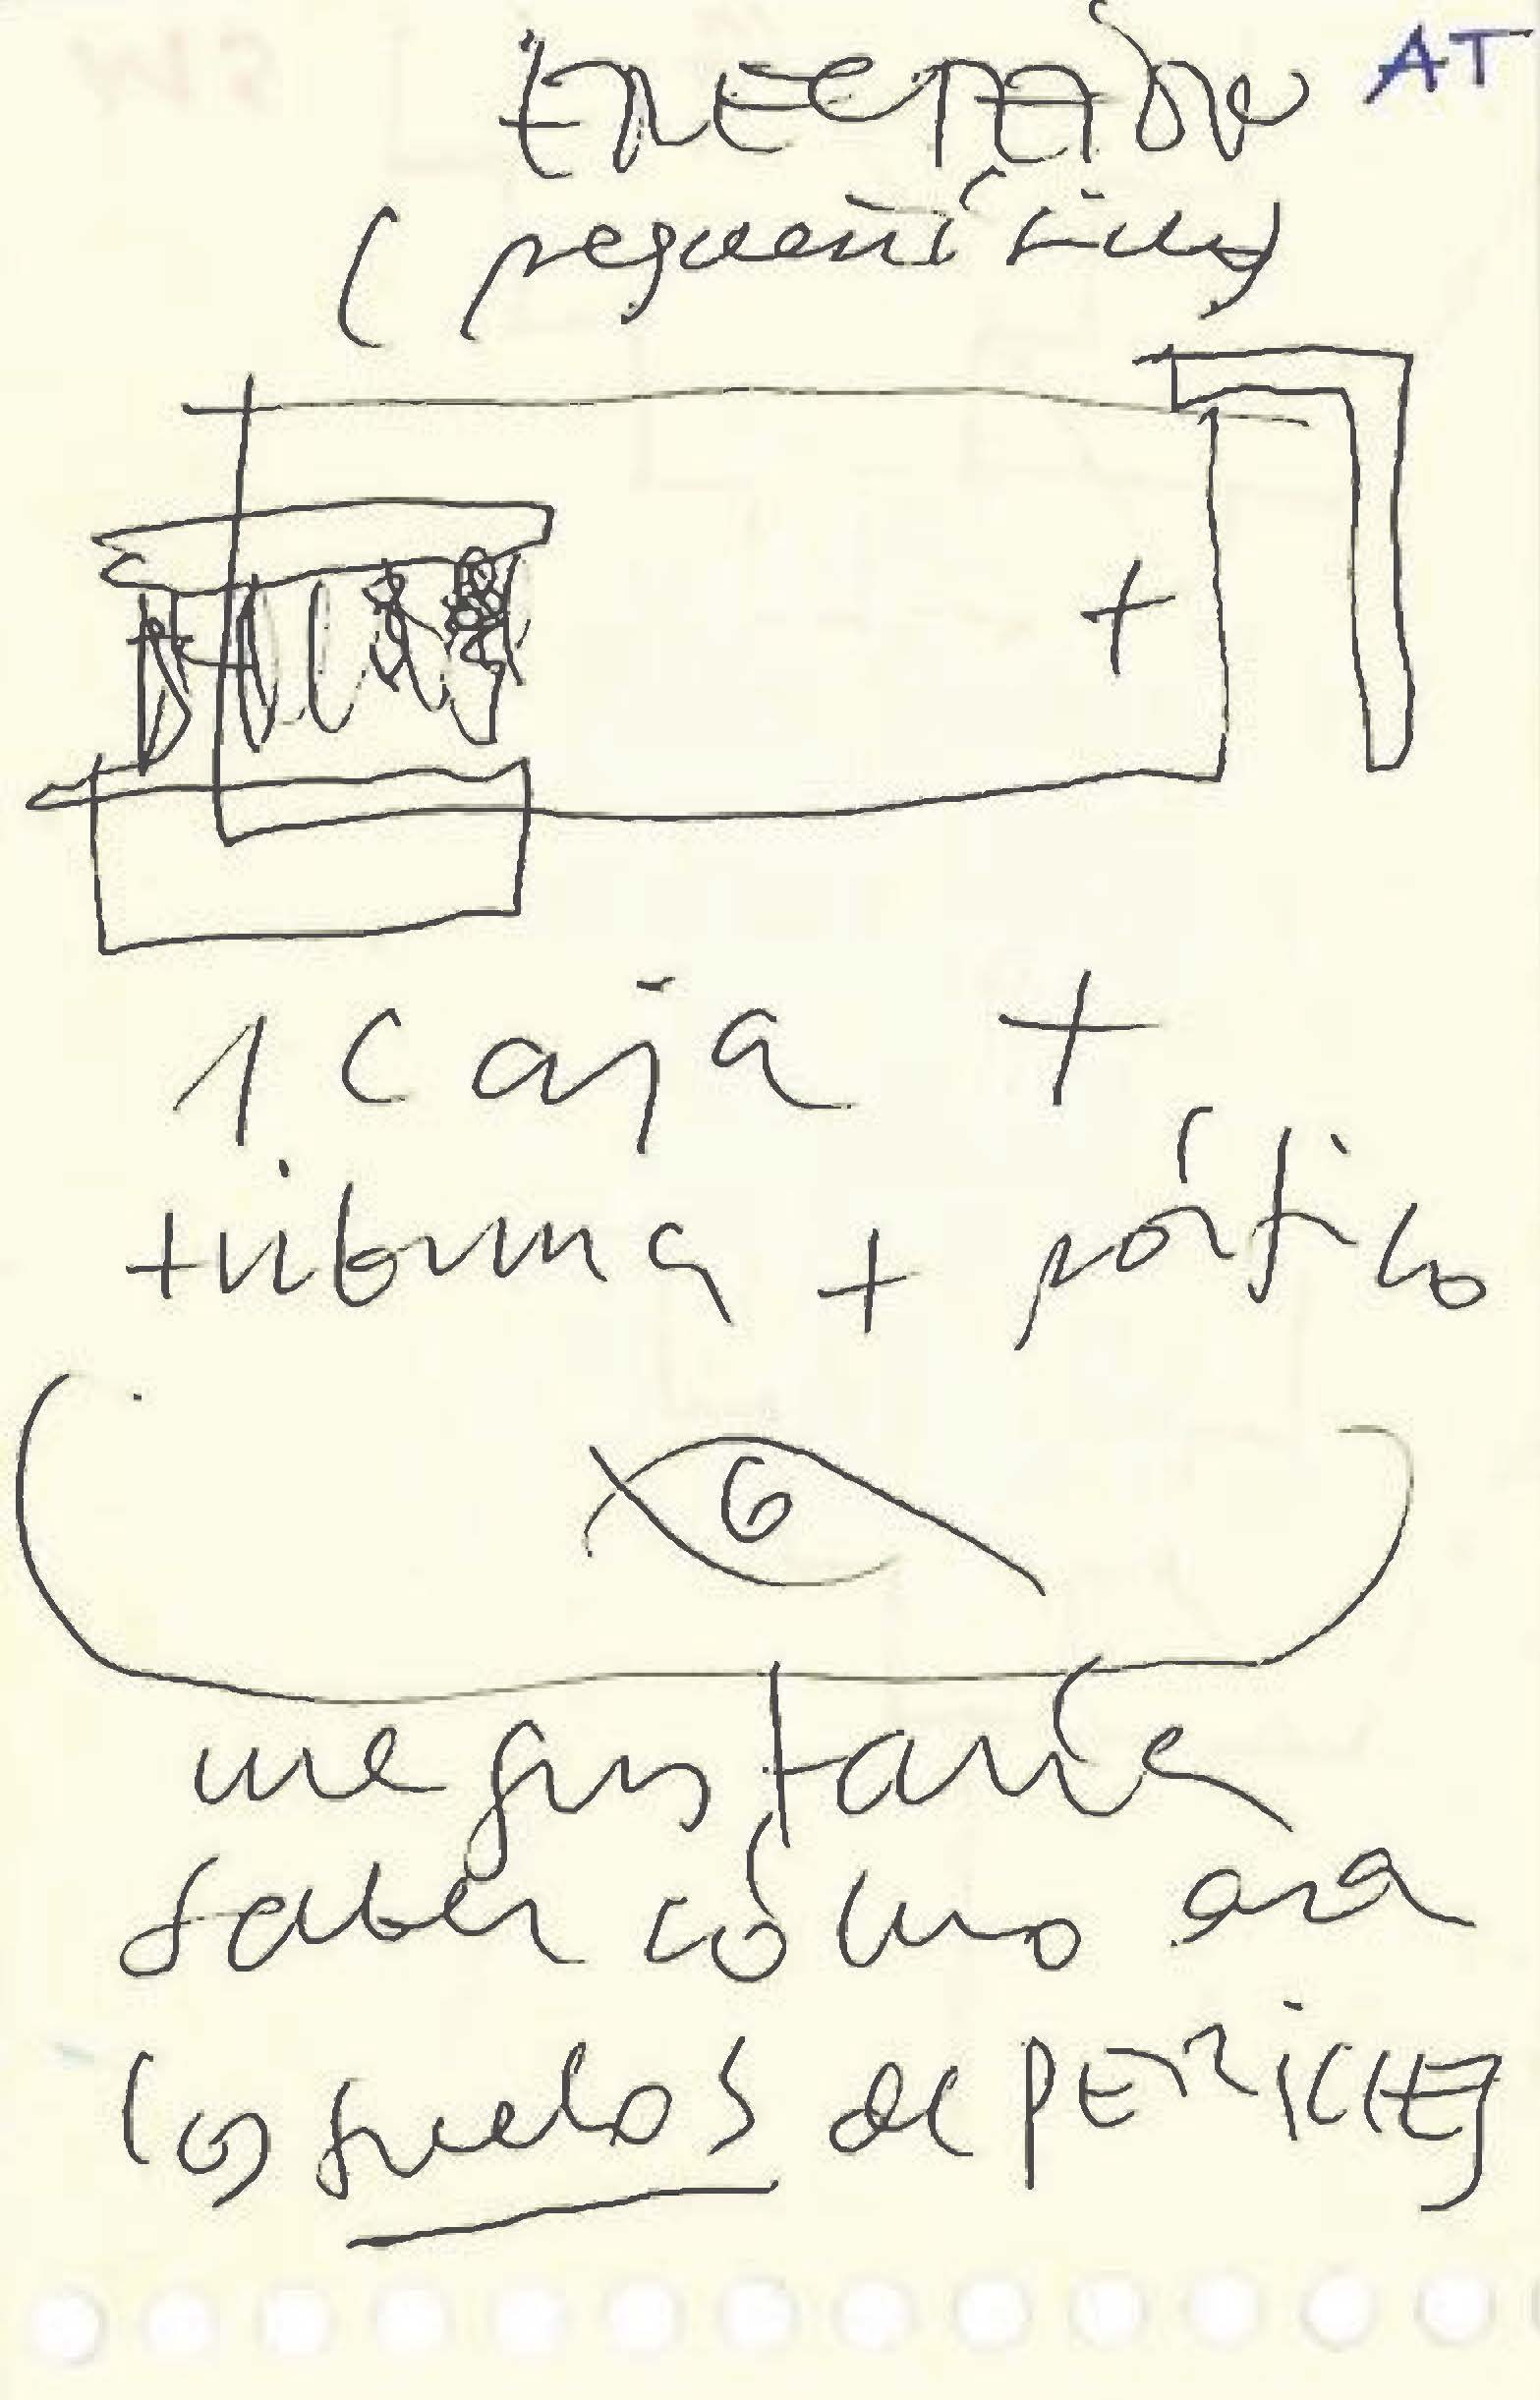 AT
1 caja +
tribuna + pórtico
me gustaría
saber cómo era
los suelos de PERICLES